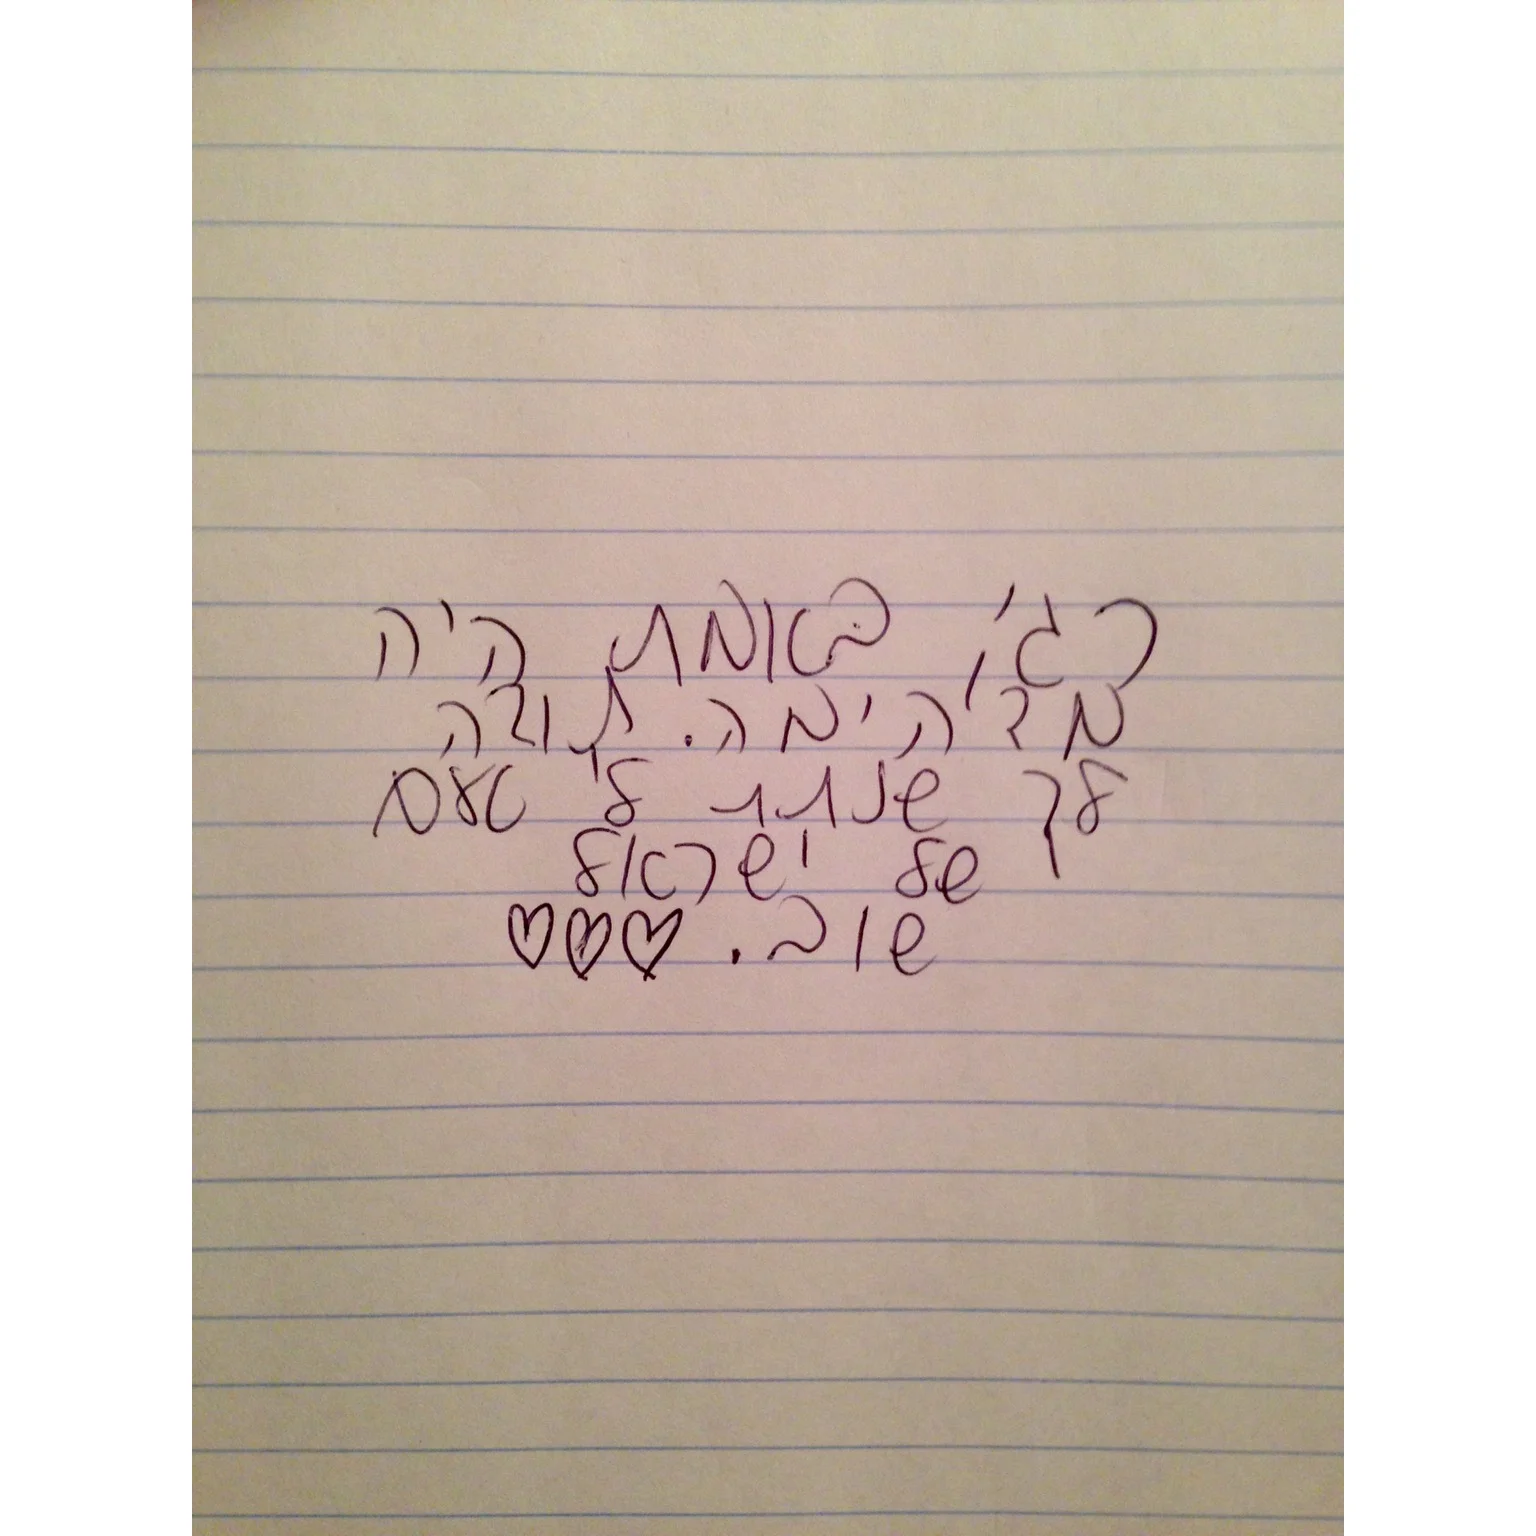 רג'י, באמת היה
מדיהימה. תודה
לך שנתת לי טעם
של ישראל
שוב. ♡♡♡